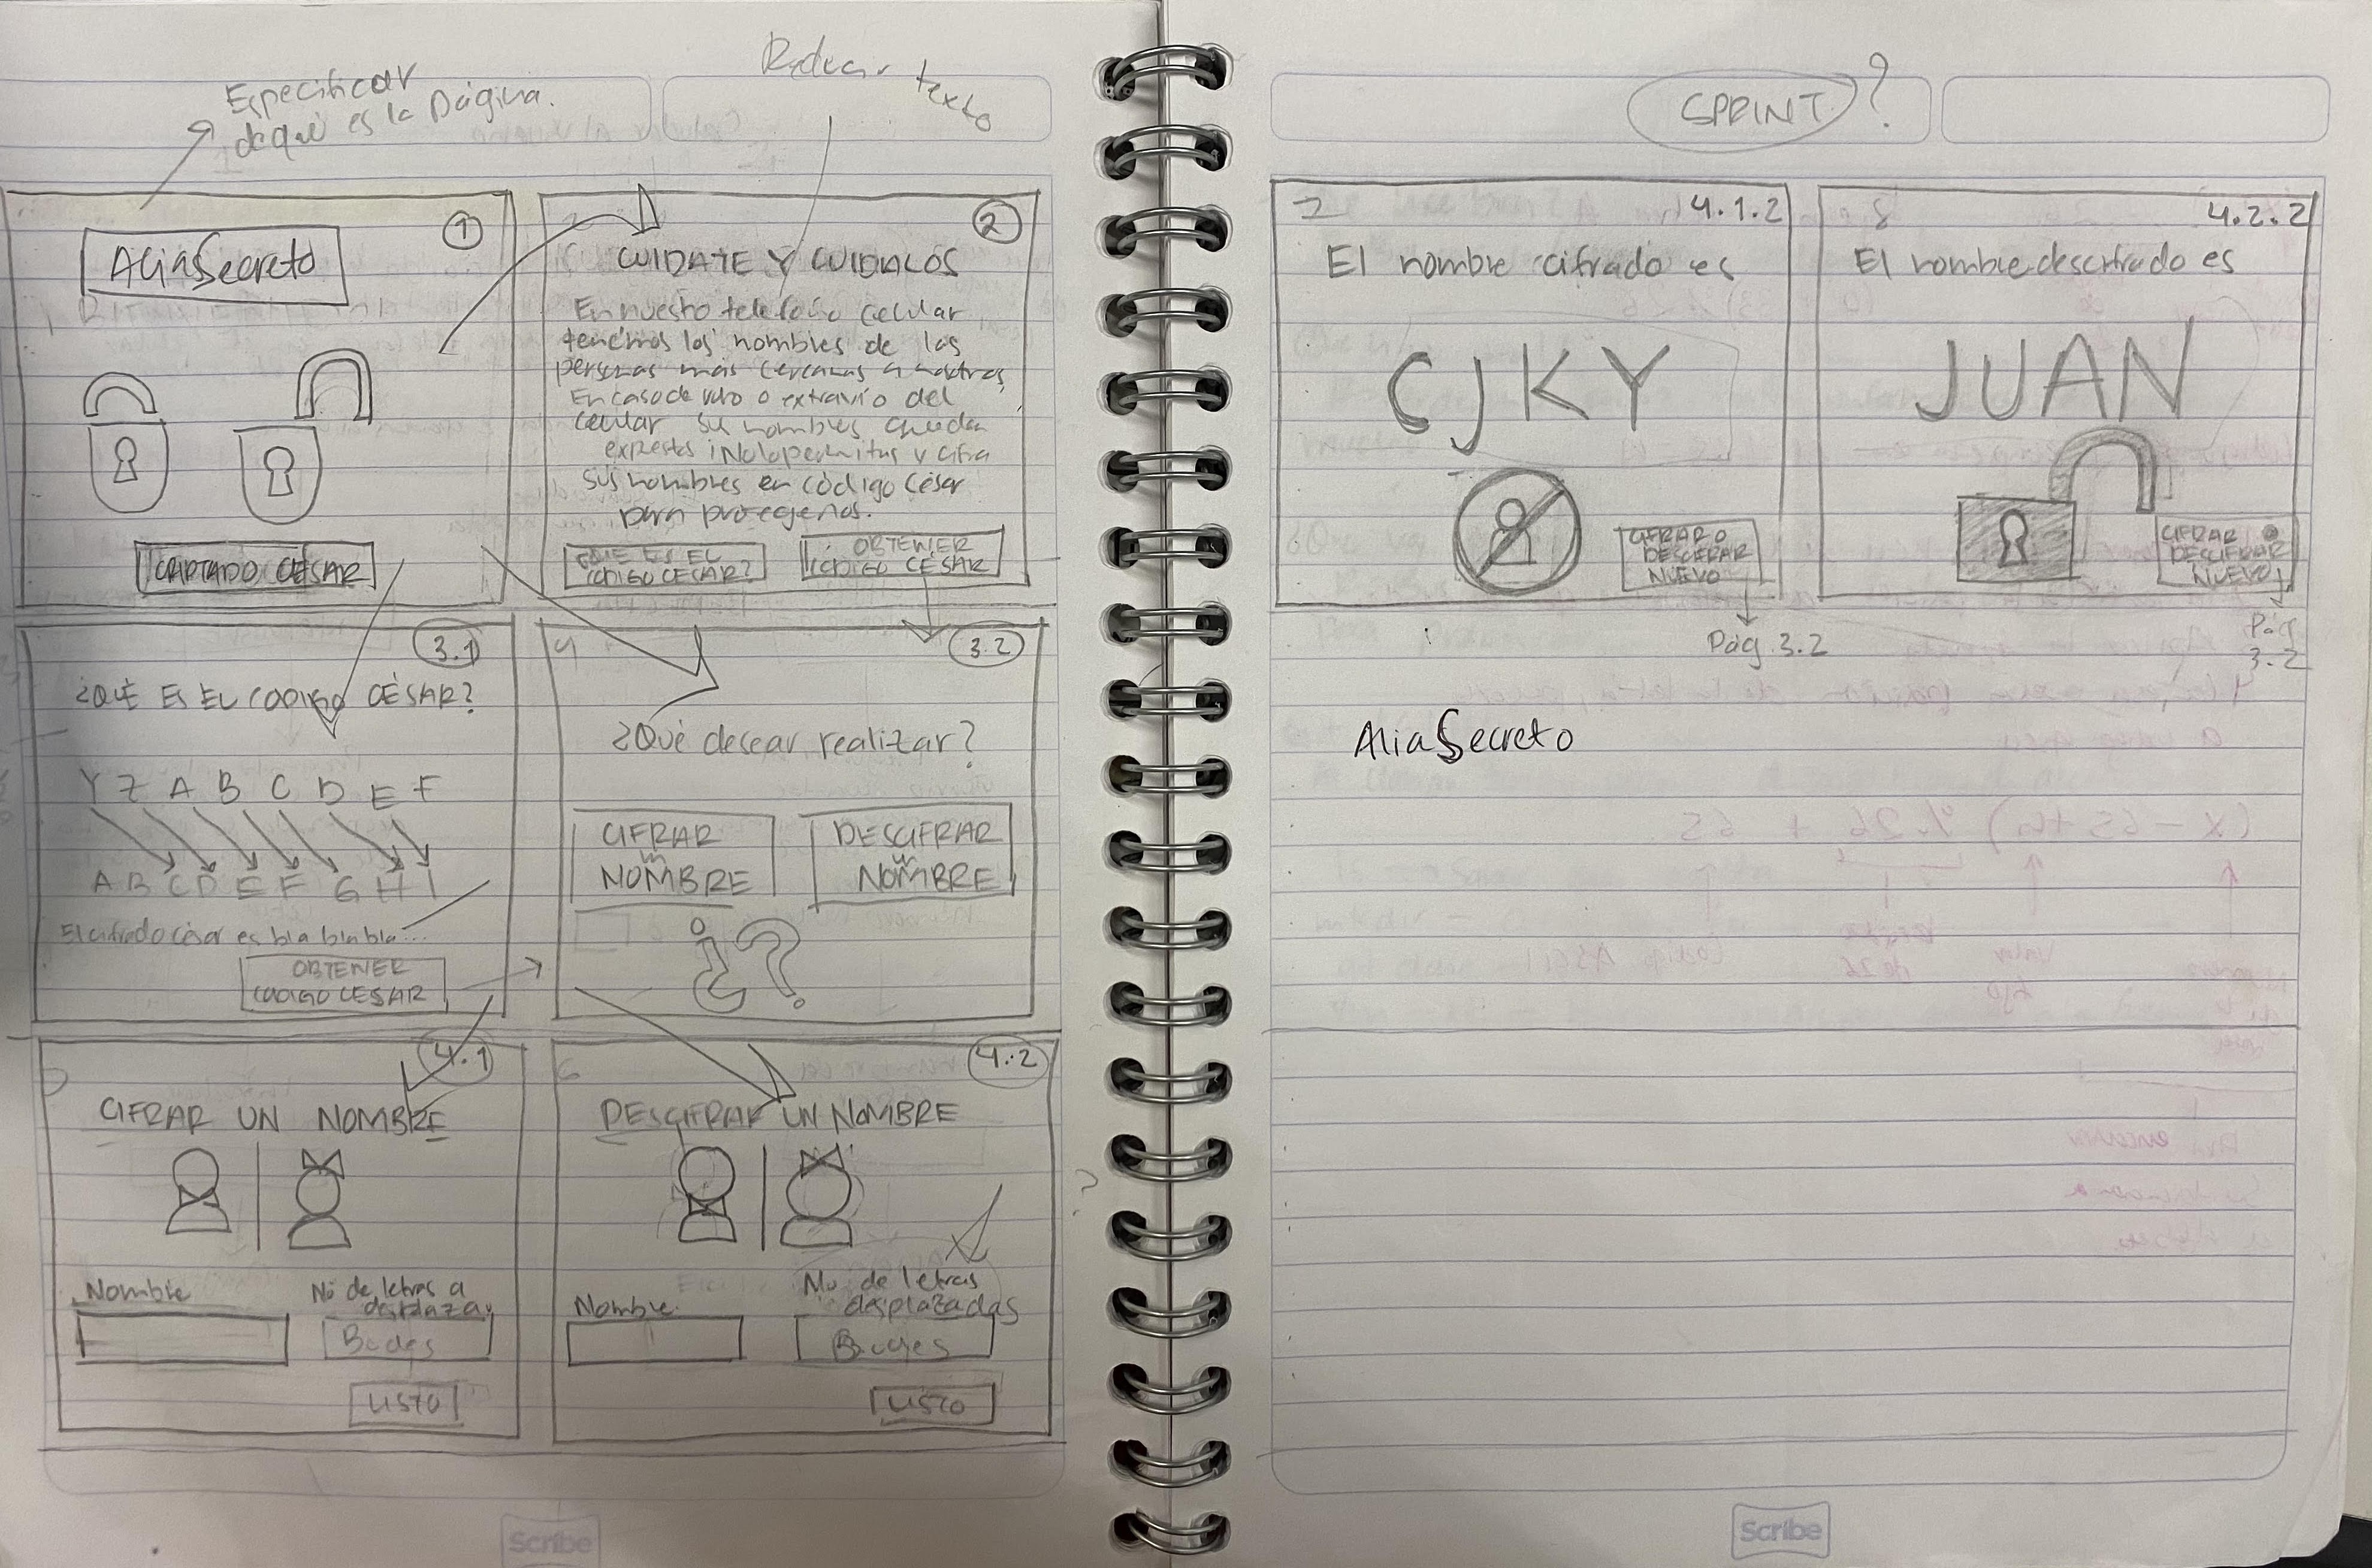 Especificar
de qué es la página.
Reducir texto
AliasSecreto
1
CIFRADO CÉSAR
2
CUIDATE Y CUIDALOS
En nuestro teléfono celular
tenemos los nombres de las
personas más cercanas a nosotros
En caso de robo o extravío del
celular sus nombres quedan
expuestos ¡No lo permitas y cifra
sus nombres en código César
para protegerlos.
¿QUE ES EL
CODIGO CESAR?
OBTENER
CÓDIGO CÉSAR
3.1
¿QUÉ ES EL CODIGO CÉSAR?
Y Z A B C D E F
A B C D E F G H I
El cifrado césar es bla bla bla...
OBTENER
CODIGO CESAR
4
3.2
¿Qué desear realizar?
CIFRAR
un
NOMBRE
DESCIFRAR
un
NOMBRE
¿?
4.1
CIFRAR UN NOMBRE
Nombre
No de letras a
desplazar
LISTO
6
4.2
DESCIFRAR UN NOMBRE
Nombre
No de letras
desplazadas
LISTO
Scribe
SPRINT?
7
4.1.2
El nombre cifrado es
CJKY
CIFRAR O
DESCIFRAR
NUEVO
Pág 3.2
8
4.2.2
El nombre descifrado es
JUAN
CIFRAR O
DESCIFRAR
NUEVO
Pág
3.2
AliasSecreto
Scribe